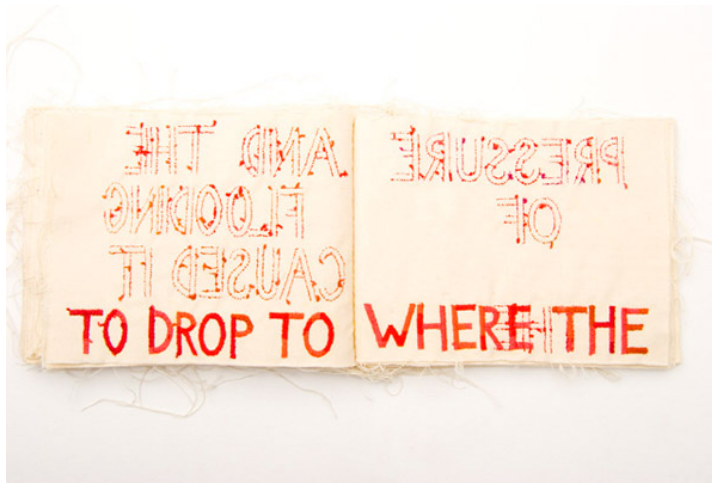 AND THE
FLOODING
CAUSED IT
TO DROP TO
PRESSURE
OF
WHERE THE